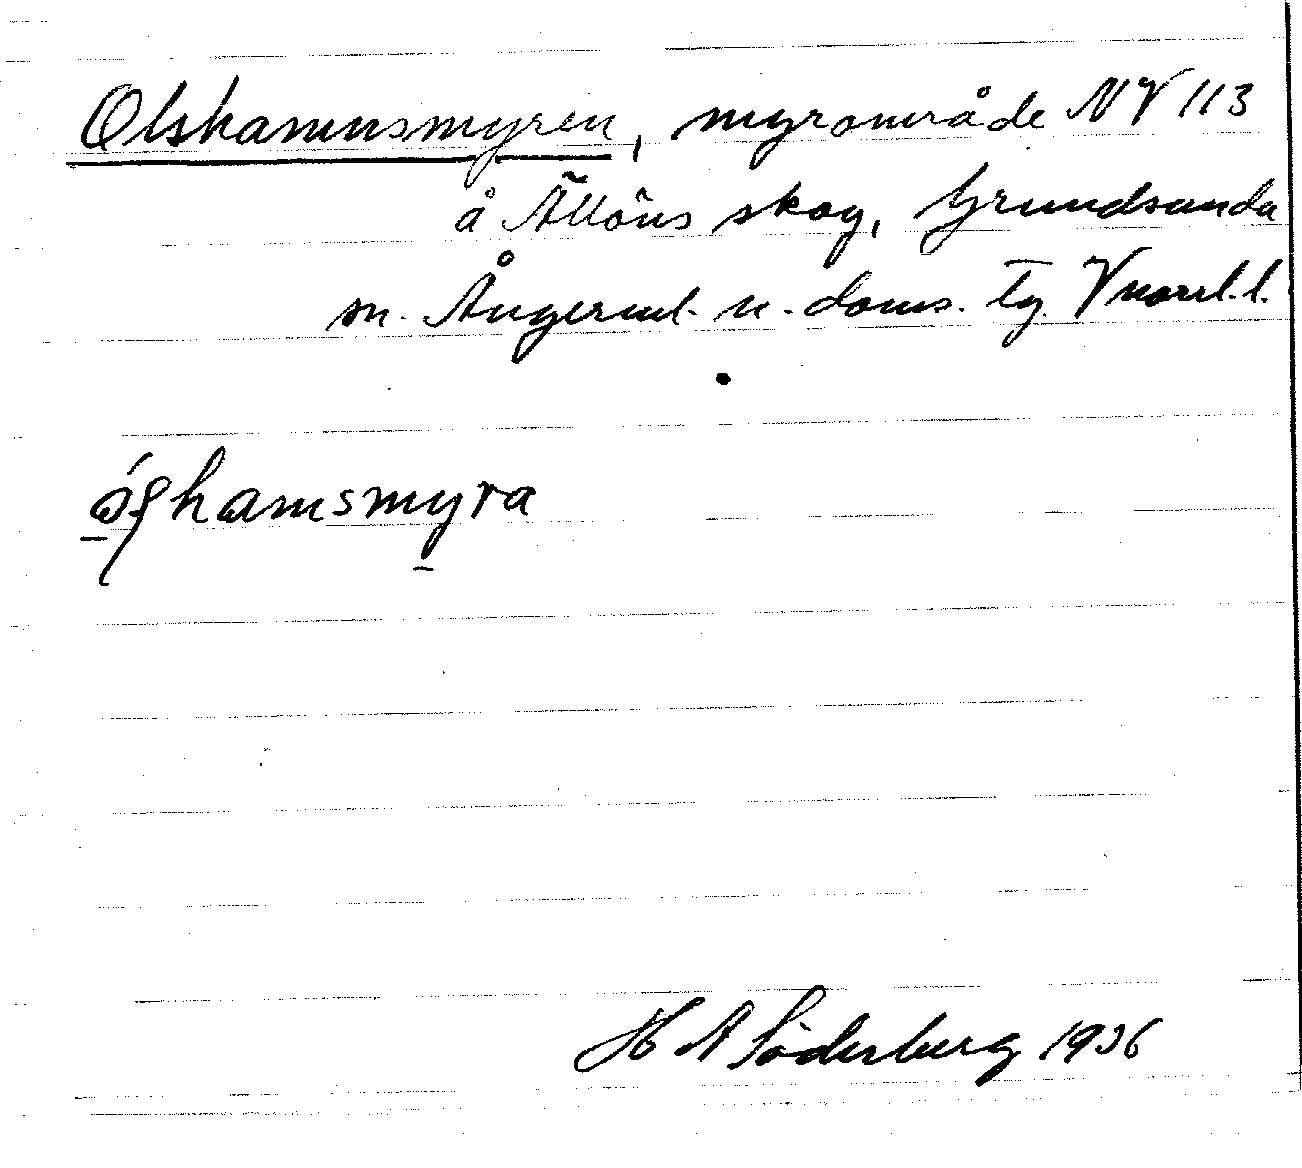 Olshammsmyren, myrområde NV 113
å Ällöns skog, Grundsunda
sn. Ångerml. n. doms. tg. Vnorrl. l.
hamsmyra
H A Söderberg 1936